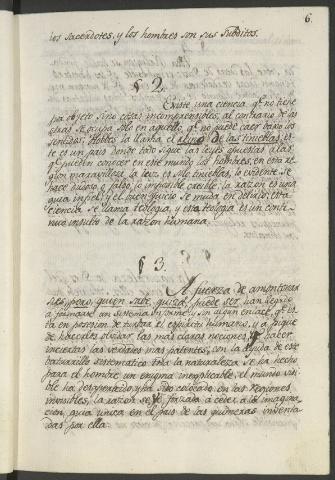 6.
los sacerdotes, y los hombres son sus subditos.
§ 2.
Existe una ciencia qe. no tiene
por objeto sino cosas incomprensibles; al contrario de las
otras se ocupa solo en aquello qe. no puede caer bajo los
sentidos. Hobbes la llama el reino de las tinieblas; es-
te es un pais donde todo sigue las leyes opuestas a las
qe. pueden conocer en este mundo los hombres; en esta re-
gion maravillosa la luz es solo tinieblas; lo evidente se
hace dudoso o falso, lo imposible creible: la razon es una
guia infiel; y el buen juicio se muda en delirio: esta
ciencia se llama teologia, y esta teologia es un conti-
nuo insulto de la razon humana.
§ 3.
A fuerza de amontonar
sies, peros, quien sabe, quizá, puede ser, han llegdo
a formarse un sistema informe, y sin algun enlace, qe. es-
ta en posesion de turbar el espiritu humano, y a pique
de hacerles olvidar las mas claras nociones, y haber
inciertas las verdades mas patentes, con la ayuda de este
baturrillo sistematico toda la naturaleza se ha hecho
para el hombre un enigma inexplicable, el mundo visi-
ble ha desaparecido, y ha sido colocado en las regiones
invisibles, la razon se ve forzada a ceder a la imagina-
cion, guia unica en el pais de las quimeras inventa-
das por ella.